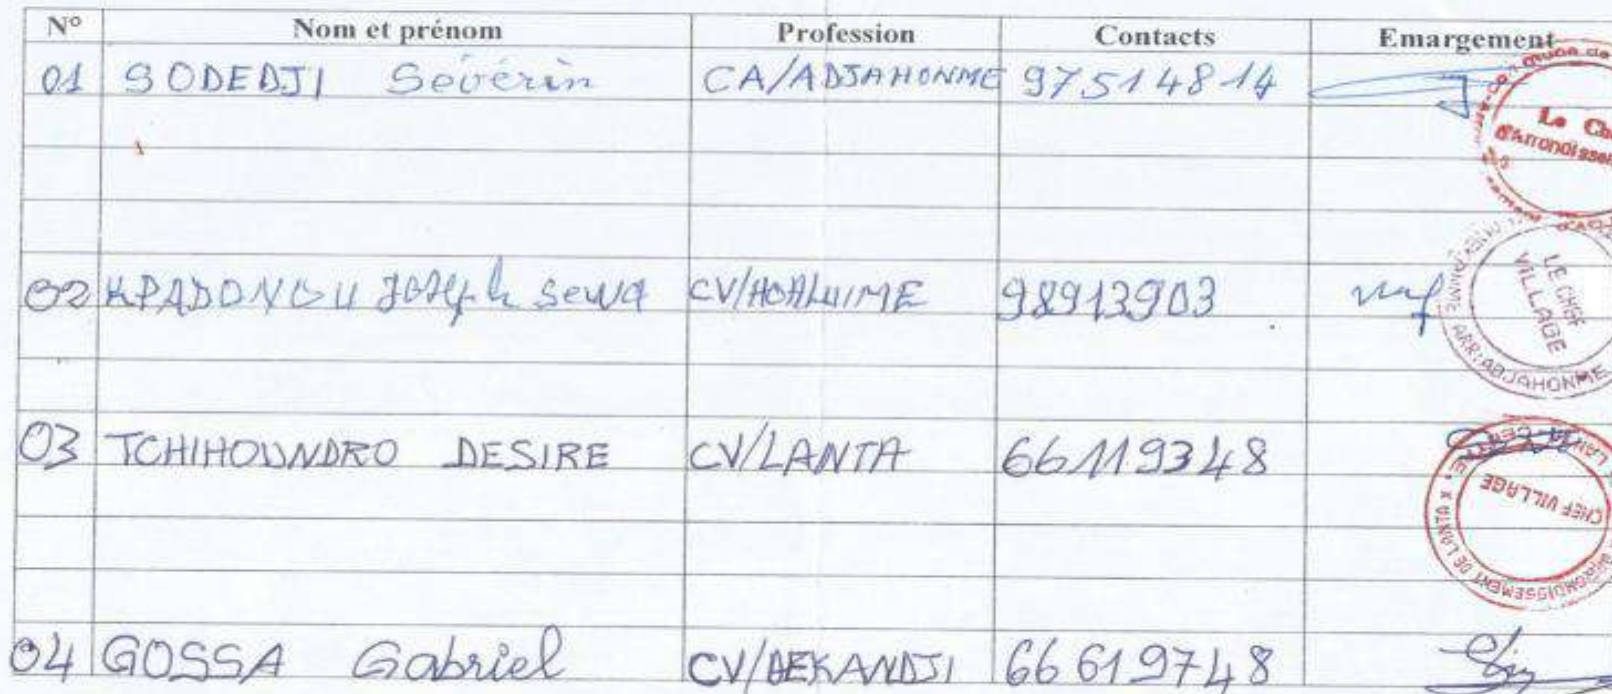 N° Nom et prénom Profession Contacts Emargement
01 SODEDJI Sévérin CA/ADJAHONME 97514814
Le
d'Arrondissement
02 KPADONOU Joseph Sewa CV/HOHLUIME 98913903
LE CHEF
VILLAGE
ARR: ADJAHONME
03 TCHIHOUNDRO DESIRE CV/LANTA 66119348
CHEF VILLAGE
ARRONDISSEMENT DE LANTA
04 GOSSA Gabriel CV/DEKANDJI 66619748